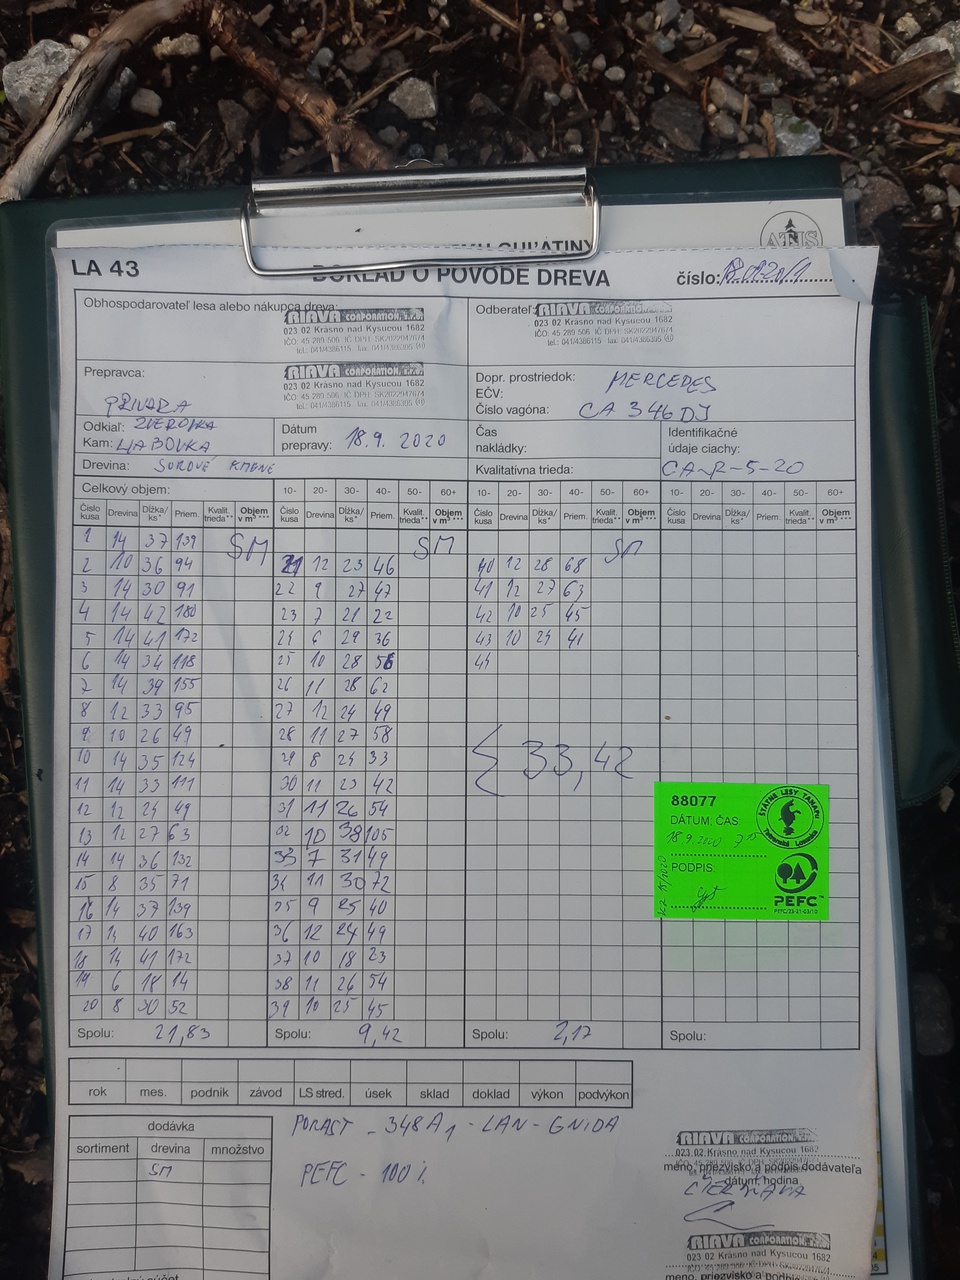 LA 43
DOKLAD O PÔVODE DREVA
číslo:
Obhospodarovateľ lesa alebo nákupca dreva:
RIAVA CORPORATION, s.r.o.
023 02 Krásno nad Kysucou 1682
IČO: 45 289 506 IČ DPH: SK2022947674
tel.: 041/4386115 fax: 041/4386395
Odberateľ:
RIAVA CORPORATION, s.r.o.
023 02 Krásno nad Kysucou 1682
IČO: 45 289 506 IČ DPH: SK2022947674
tel.: 041/4386115 fax: 041/4386395
Prepravca:
RIAVA CORPORATION, s.r.o.
023 02 Krásno nad Kysucou 1682
PRIVARA
Dopr. prostriedok: MERCEDES
EČV:
Číslo vagóna: CA 346 DJ
Odkiaľ: ZVEROVKA
Kam: ĽABOVKA
Dátum prepravy: 18.9. 2020
Čas nakládky:
Identifikačné údaje ciachy:
CA-R-5-20
Drevina: SUROVÉ KMENE
Kvalitatívna trieda:
Celkový objem: 10- 20- 30- 40- 50- 60+ 10- 20- 30- 40- 50- 60+
Číslo kusa Drevina Dĺžka/ks* Priem. Kvalit. trieda** Objem v m³ *** Číslo kusa Drevina Dĺžka/ks* Priem. Kvalit. trieda** Objem v m³ *** Číslo kusa Drevina Dĺžka/ks* Priem. Kvalit. trieda** Objem v m³ *** Číslo kusa Drevina Dĺžka/ks* Priem. Kvalit. trieda** Objem v m³ ***
1 14 37 139 SM SM SM
2 10 36 94 21 12 23 46 40 12 28 68
3 14 30 91 22 9 27 47 41 12 27 63
4 14 42 180 23 7 21 22 42 10 25 45
5 14 41 172 24 6 29 36 43 10 24 41
6 14 34 118 25 10 28 56 44
7 14 39 155 26 11 28 62
8 12 33 95 27 12 24 49
9 10 26 49 28 11 27 58
10 14 35 124 29 8 24 33
11 14 33 111 30 11 23 42
12 12 24 49 31 11 26 54
13 12 27 63 32 10 38 105
14 14 36 132 33 7 31 49
15 8 35 71 34 11 30 72
16 14 37 139 35 9 25 40
17 14 40 163 36 12 24 49
18 14 41 172 37 10 18 23
19 6 18 14 38 11 26 54
20 8 30 52 39 10 25 45
33,42
88077
DÁTUM, ČAS:
18.9.2020 7 15
PODPIS:
ŠTÁTNE LESY TANAPu
Tatranská Lomnica
PEFC
PEFC/23-21-03/10
Spolu: 21,83 Spolu: 9,42 Spolu: 2,17 Spolu:
rok mes. podnik závod LS stred. úsek sklad doklad výkon podvýkon
dodávka
sortiment drevina množstvo
SM
PORAST - 348A1 - LAN - GNIDA
PEFC - 100%
RIAVA CORPORATION, s.r.o.
023 02 Krásno nad Kysucou 1682
meno, priezvisko a podpis dodávateľa
dátum, hodina
RIAVA CORPORATION, s.r.o.
023 02 Krásno nad Kysucou 1682
meno, priezvisko a